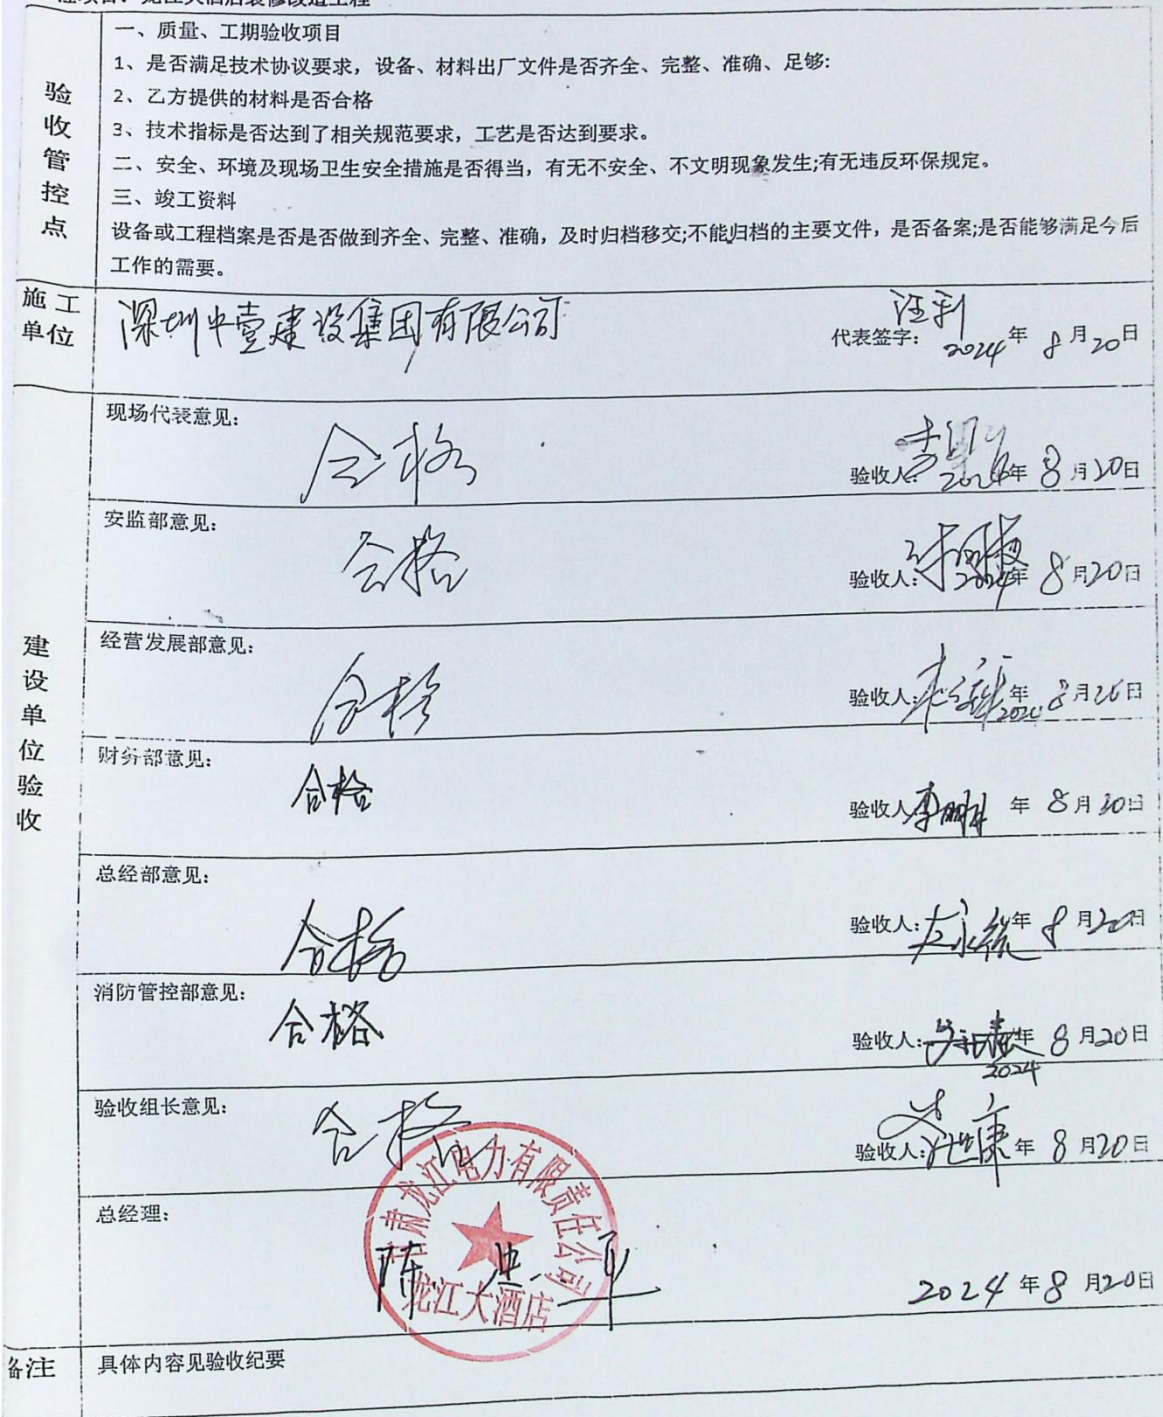 龙江大酒店装修改造工程
验收管控点
一、质量、工期验收项目
1、是否满足技术协议要求，设备、材料出厂文件是否齐全、完整、准确、足够:
2、乙方提供的材料是否合格
3、技术指标是否达到了相关规范要求，工艺是否达到要求。
二、安全、环境及现场卫生安全措施是否得当，有无不安全、不文明现象发生;有无违反环保规定。
三、竣工资料
设备或工程档案是否是否做到齐全、完整、准确，及时归档移交;不能归档的主要文件，是否备案;是否能够满足今后
工作的需要。
施工单位
深圳中壹建设集团有限公司
代表签字: 汪利
2024年 8月20日
建设单位验收
现场代表意见:
合格
验收人: 2024年 8月20日
安监部意见:
合格
验收人: 2024年 8月20日
经营发展部意见:
合格
验收人: 年 8月20日
财务部意见:
合格
验收人 李 年 8月20日
总经部意见:
合格
验收人: 年 8月20日
消防管控部意见:
合格
验收人: 年 8月20日
2024
验收组长意见:
合格
验收人: 年 8月20日
总经理:
陈忠平
甘肃龙江电力有限责任公司
龙江大酒店
2024年8月20日
备注
具体内容见验收纪要